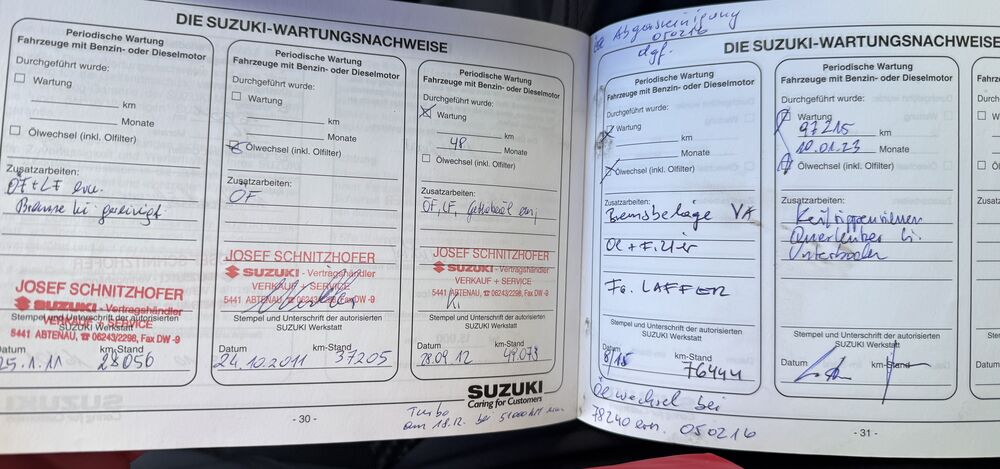 DIE SUZUKI-WARTUNGSNACHWEISE
Periodische Wartung
Fahrzeuge mit Benzin- oder Dieselmotor
Durchgeführt wurde:
Wartung
km
Monate
Ölwechsel (inkl. Ölfilter)
Zusatzarbeiten:
ÖF+LF ern.
Bremse hi gereinigt
JOSEF SCHNITZHOFER
SUZUKI - Vertragshändler
VERKAUF + SERVICE
5441 ABTENAU, ☎ 06243/2298, Fax DW -9
Stempel und Unterschrift der autorisierten
SUZUKI Werkstatt
Datum km-Stand
25.1.11 28056
Periodische Wartung
Fahrzeuge mit Benzin- oder Dieselmotor
Durchgeführt wurde:
Wartung
km
Monate
Ölwechsel (inkl. Ölfilter)
Zusatzarbeiten:
ÖF
JOSEF SCHNITZHOFER
SUZUKI - Vertragshändler
VERKAUF + SERVICE
5441 ABTENAU, ☎ 06243/2298, Fax DW -9
Stempel und Unterschrift der autorisierten
SUZUKI Werkstatt
Datum km-Stand
24.10.2011 37205
Periodische Wartung
Fahrzeuge mit Benzin- oder Dieselmotor
Durchgeführt wurde:
Wartung
km
48 Monate
Ölwechsel (inkl. Ölfilter)
Zusatzarbeiten:
ÖF, LF, Getriebeöl ern,
JOSEF SCHNITZHOFER
SUZUKI - Vertragshändler
VERKAUF + SERVICE
5441 ABTENAU, ☎ 06243/2298, Fax DW -9
Stempel und Unterschrift der autorisierten
SUZUKI Werkstatt
Datum km-Stand
28.09.12 49.073
SUZUKI
Caring for Customers
- 30 -
Turbo
am 18.12. bei 51000 km
Abgasreinigung
050216
dgf.
DIE SUZUKI-WARTUNGSNACHWEISE
Periodische Wartung
Fahrzeuge mit Benzin- oder Dieselmotor
Durchgeführt wurde:
Wartung
km
Monate
Ölwechsel (inkl. Ölfilter)
Zusatzarbeiten:
Bremsbeläge VA
Öl + Filter
Fa. LAFFER
Stempel und Unterschrift der autorisierten
SUZUKI Werkstatt
Datum km-Stand
8/15 76444
Periodische Wartung
Fahrzeuge mit Benzin- oder Dieselmotor
Durchgeführt wurde:
Wartung
97215 km
10.01.23 Monate
Ölwechsel (inkl. Ölfilter)
Zusatzarbeiten:
Keilrippenriemen
Querlenker li.
Unterboden
Stempel und Unterschrift der autorisierten
SUZUKI Werkstatt
Datum km-Stand
Ölwechsel bei
78240 ern. 050216
- 31 -